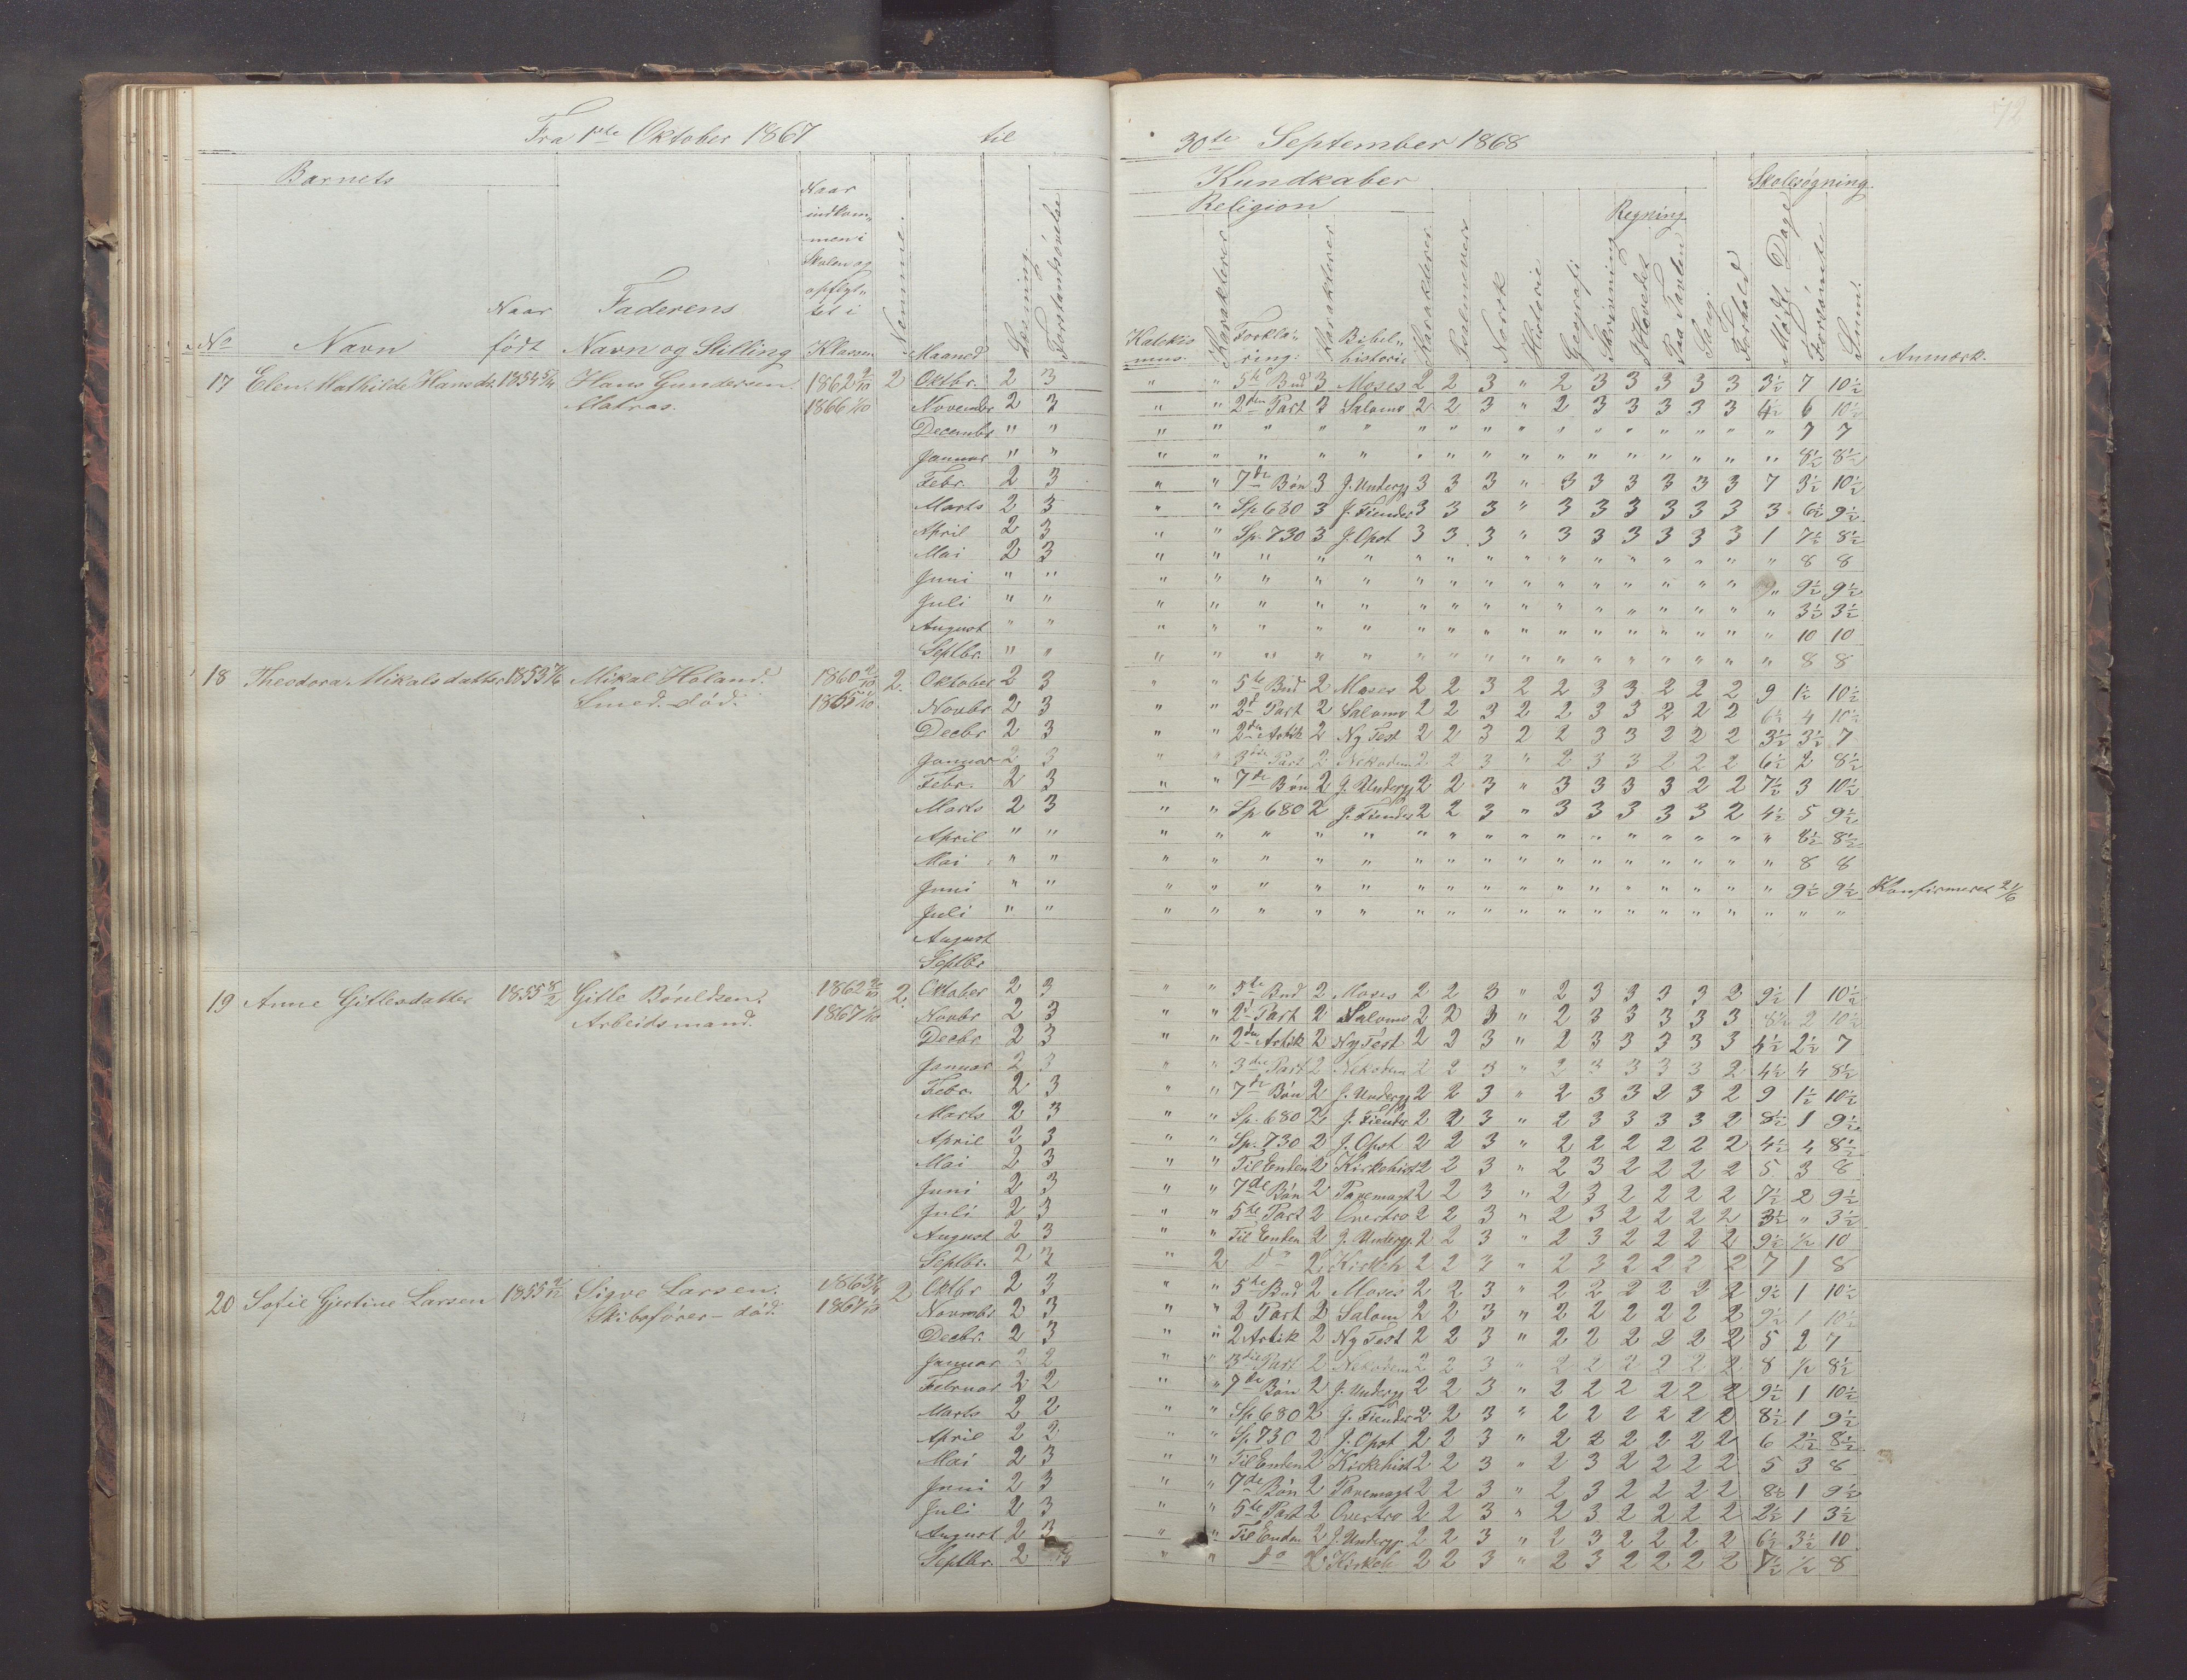 Fra 1ste Oktober 1867 til 30te September 1868
Barnets
Kundkaber
Skolesøgning.
Religion
Regning
No Navn
Naar født
Faderens Navn og Stilling
Naar indkom„ men i Skolen og opflyt„ tet i Klassen
Nummer.
Maaned
Læsning.
Forstandsøvelse
Katekis mus.
Karakterer
Forkla„ ring:
Karakterer
Bibel„ historie
Karakterer
Psalmevers
Norsk
Historie
Geografi
Skrivning
I Hovedet
Paa Tavlen
Sang.
Forhold
Mødt Dage
Forsømte
Sum.
Anmærk.
17 Elen Mathilde Hansdr. 1854 Hans Gundersen. 1862 2 Oktbr. 2 3 " " 5te Bud 3 Moses 2 2 3 " 2 3 3 3 3 3 3½ 7 10½
Matros. 1866 1/10 November 2 3 " " 2den Part 3 Salomo 2 2 3 " 2 3 3 3 3 3 4½ 6 10½
Decembr " " " " " " " " " " " " " " " " " " 7 7
Januar " " " " " " " " " " " " " " " " " " 8½ 8½
Febr. 2 3 " " 7de Bøn 3 J. Underg 3 3 3 " 3 3 3 3 3 3 7 3½ 10½
Marts 2 3 " " Sp 680 3 J. Fiender 3 3 3 " 3 3 3 3 3 3 3 6½ 9½
April 2 3 " " Sp. 730 3 J. Opst 3 3 3 " 3 3 3 3 3 3 1 7½ 8½
Mai 2 3 " " " " " " " " " " " " " " " " " 8 8
Juni " " " " " " " " " " " " " " " " " " " 9½ 9½
Juli " " " " " " " " " " " " " " " " " " " 3½ 3½
August " " " " " " " " " " " " " " " " " " " 10 10
Septbr. " " " " " " " " " " " " " " " " " " " 8 8
18 Theodora Mikalsdatter 1853 Mikal Holand. 1860 2. Oktober 2 3 " " 5te Bud 2 Moses 2 2 3 2 2 3 3 2 2 2 9 1½ 10½
Smed. død. 1865 1/10 Novbr 2 3 " " 2d Part 2 Salomo 2 2 3 2 2 3 3 2 2 2 6½ 4 10½
Decbr 2 3 " " 2den Artik 2 Ny Test 2 2 3 2 2 3 3 2 2 2 3½ 3½ 7
Januar 2 3 " " 3die Part 2 Nekodem 2 2 3 " 2 3 3 2 2 2 6½ 2 8½
Febr. 2 3 " " 7de Bøn 2 J. Underg 2 2 3 " 3 3 3 3 2 2 7½ 3 10½
Marts 2 3 " " Sp 680 2 J. Fiender 2 2 3 " 3 3 3 3 3 2 4½ 5 9½
April " " " " " " " " " " " " " " " " " " " 8½ 8½
Mai " " " " " " " " " " " " " " " " " " " 8 8
Juni " " " " " " " " " " " " " " " " " " " 9½ 9½ Konfirmeret 21/6
Juli " " " " " " " " " " " " " " " " " " " " "
August
Septbr
19 Anne Gitlesdatter 1855 8/2 Gitle Børeldsen. 1862 2. Oktober 2 3 " " 5te Bud 2 Moses 2 2 3 " 2 3 3 3 3 2 9½ 1 10½
Arbeidsmand. 1867 1/10 Novbr 2 3 " " 2d Part 2 Salomo 2 2 3 " 2 3 3 3 3 3 8½ 2 10½
Decbr 2 3 " " 2den Artik 2 Ny Test 2 2 3 " 2 3 3 3 3 3 4½ 2½ 7
Januar 2 3 " " 3die Part 2 Nekodem 2 2 3 " 2 3 3 3 3 2 4½ 4 8½
Febr. 2 3 " " 7de Bøn 2 J. Underg 2 2 3 " 2 3 3 2 3 2 9 1½ 10½
Marts 2 3 " " Sp. 680 2 J. Fiender 2 2 3 " 2 3 3 3 3 2 8½ 1 9½
April 2 3 " " Sp. 730 2 J. Opst 2 2 3 " 2 2 2 2 2 2 4½ 4 8½
Mai 2 3 " " Til Enden 2 Kirkehist 2 2 3 " 2 3 2 2 2 2 5 3 8
Juni 2 3 " " 7de Bøn 2 Pavemagt 2 2 3 " 2 3 2 2 2 2 7½ 2 9½
Juli 2 3 " " 5te Part 2 Overtro 2 2 3 " 2 3 2 2 2 2 3½ " 3½
August 2 3 " " Til Enden 2 J. Underg. 2 2 3 " 2 3 2 2 2 2 9½ ½ 10
Septbr. 2 3 " 2 Do 2 Kirkeh 2 2 3 " 2 3 2 2 2 2 7 1 8
20 Sofie Gjertine Larsen 1855 Sigve Larsen. 1863 2 Oktbr 2 3 " " 5te Bud 2 Moses 2 2 3 " 2 2 2 2 2 2 9½ 1 10½
Skibsfører - død. 1867 1/10 Novembr 2 3 " " 2 Part 2 Salom 2 2 3 " 2 2 2 2 2 2 9½ 1 10½
Decbr. 2 3 " " 2 Artik 2 Ny Test 2 2 3 " 2 2 2 2 2 2 5 2 7
Januar 2 2 " " 3die Part 2 Nekodem 2 2 3 " 2 2 2 2 2 2 8 ½ 8½
Februar 2 2 " " 7de Bøn 2 J. Underg 2 2 3 " 2 2 2 2 2 2 9½ 1 10½
Marts 2 2 " " Sp 680 2 J. Fiender 2 2 3 " 2 2 2 2 2 2 8½ 1 9½
April 2 2 " " Sp. 730 2 J. Opst 2 2 3 " 2 2 2 2 2 2 6 2½ 8½
Mai 2 3 " " Til Enden 2 Kirkehist 2 2 3 " 2 3 2 2 2 2 5 3 8
Juni 2 3 " " 7de Bøn 2 Pavemagt 2 2 3 " 2 3 2 2 2 2 8½ 1 9½
Juli 2 3 " " 5te Part 2 Overtro 2 2 3 " 2 3 2 2 2 2 2½ 1 3½
August 2 3 " " Til Enden 2 J. Undergr 2 2 3 " 2 3 2 2 2 2 6½ 3½ 10
Septbr. 2 " " Do 2 Kirkeh 2 2 3 " 2 3 2 2 2 2 7½ ½ 8